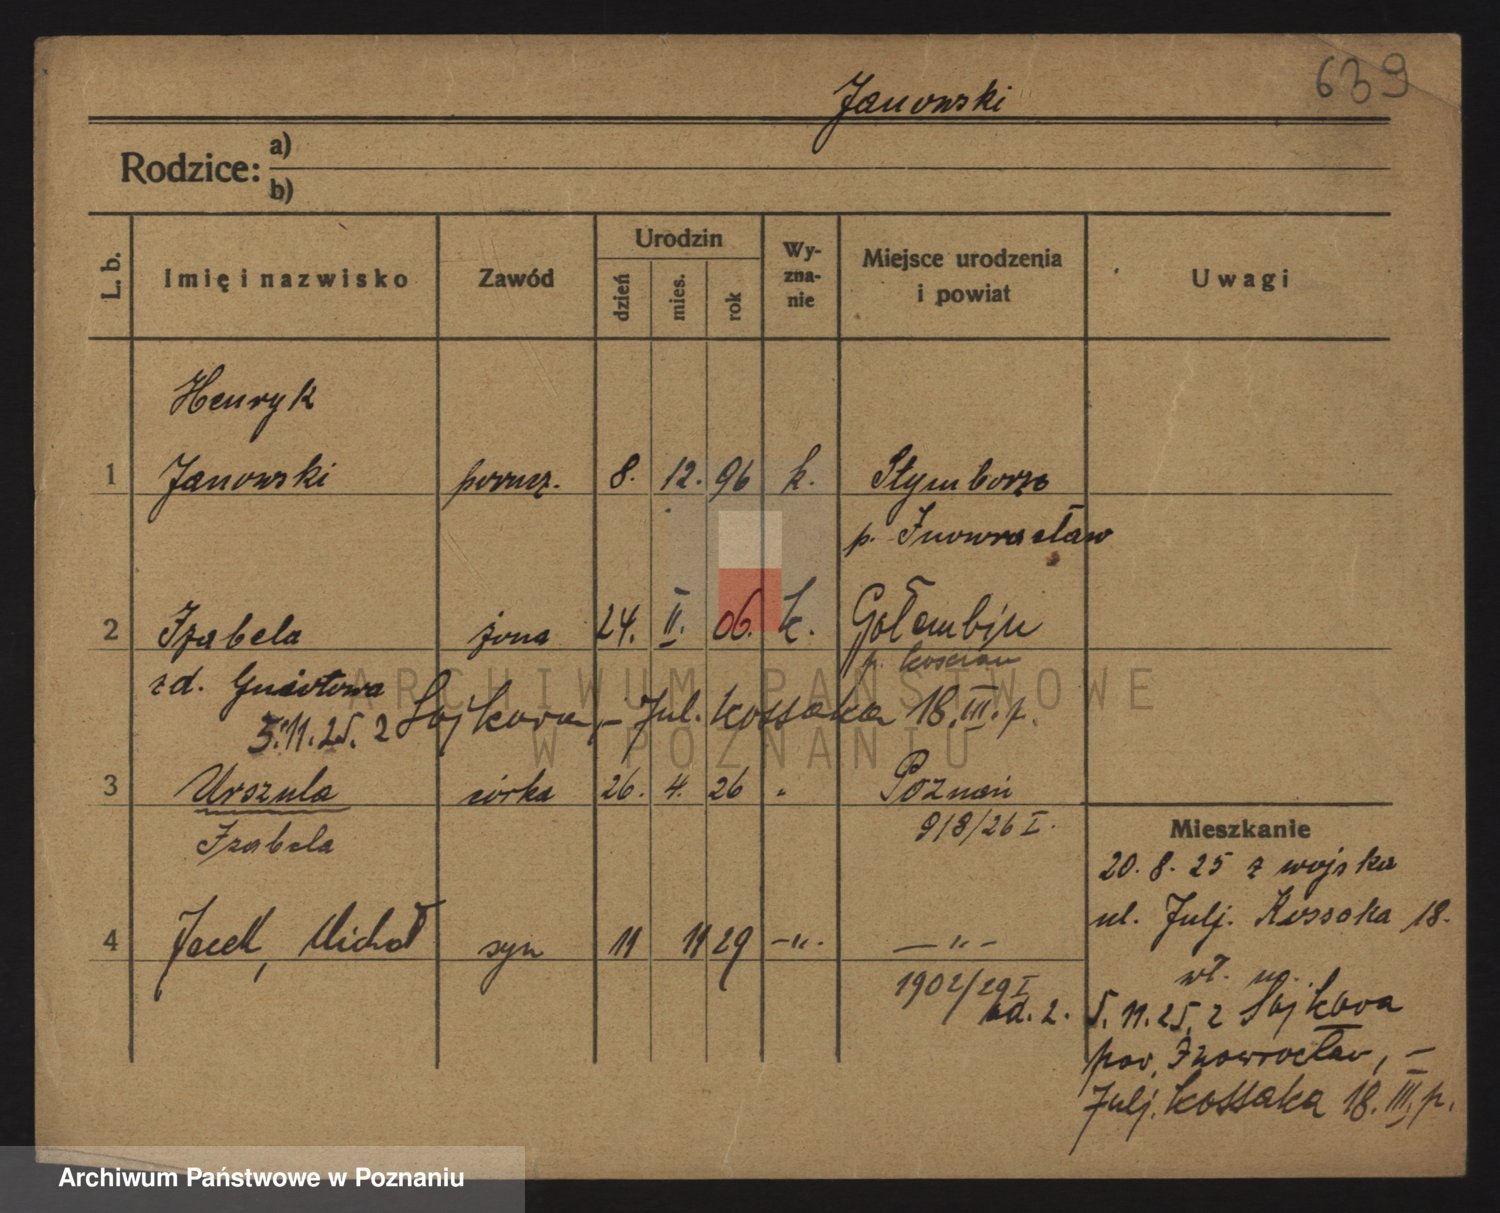 639
Janowski
Rodzice: a)
b)
L. b.
Imię i nazwisko
Zawód
Urodzin
dzień
mies.
rok
Wy-
zna-
nie
Miejsce urodzenia
i powiat
Uwagi
Henryk
1 Janowski porucz. 8. 12. 96 k. Szymborze
p. Inowrocław
2 Izabela żona 24. II. 06. k. Gołembin
p. Kościan
zd. Gniotowa
5.11.25. z Sojkova, – Jul. Kossaka 18. III. p.
3 Urszula córka 26. 4. 26 " Poznań
Izabela 918/26 I.
4 Jacek, Michał syn 11 11 29 –"– –"–
1902/29 I
ad. 2.
Mieszkanie
20. 8. 25 z wojska
ul. Julj. Kossaka 18.
wł. m.
5. 11. 25, z Sojkova
pow. Inowrocław, –
Julj. Kossaka 18. III. p.
ARCHIWUM PAŃSTWOWE
W POZNANIU
Archiwum Państwowe w Poznaniu